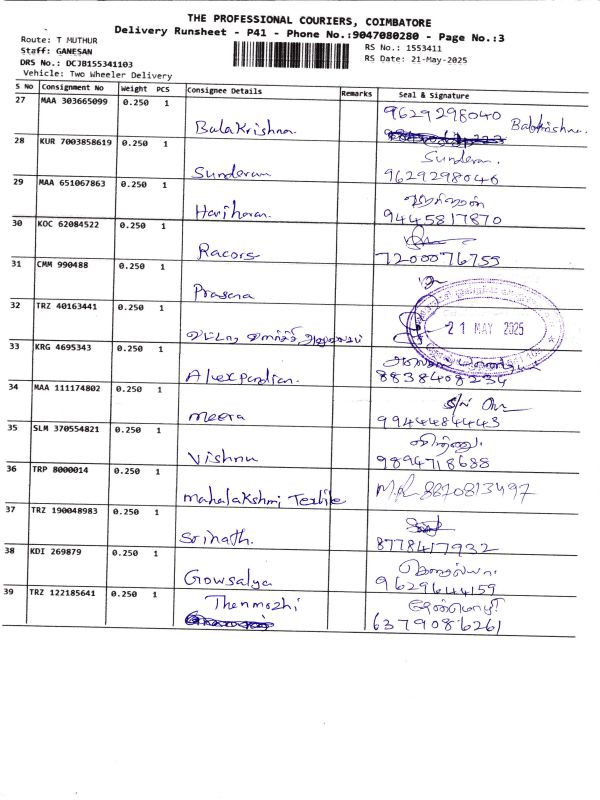 THE PROFESSIONAL COURIERS, COIMBATORE
Delivery Runsheet - P41 - Phone No.:9047080280 - Page No.:3
Route: T MUTHUR
RS No.: 1553411
Staff: GANESAN
RS Date: 21-May-2025
DRS No.: DCJB155341103
Vehicle: Two Wheeler Delivery
S No Consignment No Weight PCS Consignee Details Remarks Seal & Signature
27 MAA 303665099 0.250 1 Balakrishna 9629298040 Balakrishna.
28 KUR 7003858619 0.250 1 Sunderam Sunderam. 9629298046
29 MAA 651067863 0.250 1 Hariharan 9445817870
30 KOC 62084522 0.250 1 Racors 7200076755
31 CMM 990488 0.250 1 Prasana
32 TRZ 40163441 0.250 1 21 MAY 2025
33 KRG 4695343 0.250 1 Alexpandian. 8838408234
34 MAA 111174802 0.250 1 meera 9944484443
35 SLM 370554821 0.250 1 Vishnu விஷ்ணு 9894718688
36 TRP 8000014 0.250 1 mahalakshmi Textile 8870813497
37 TRZ 190048983 0.250 1 Srinath. 8778417932
38 KDI 269879 0.250 1 Gowsalya கௌசல்யா 9629644159
39 TRZ 122185641 0.250 1 Thenmozhi தேன்மொழி 6379086261